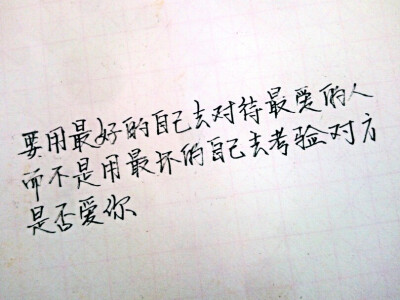 要用最好的自己去对待最爱的人
而不是用最坏的自己去考验对方
是否爱你